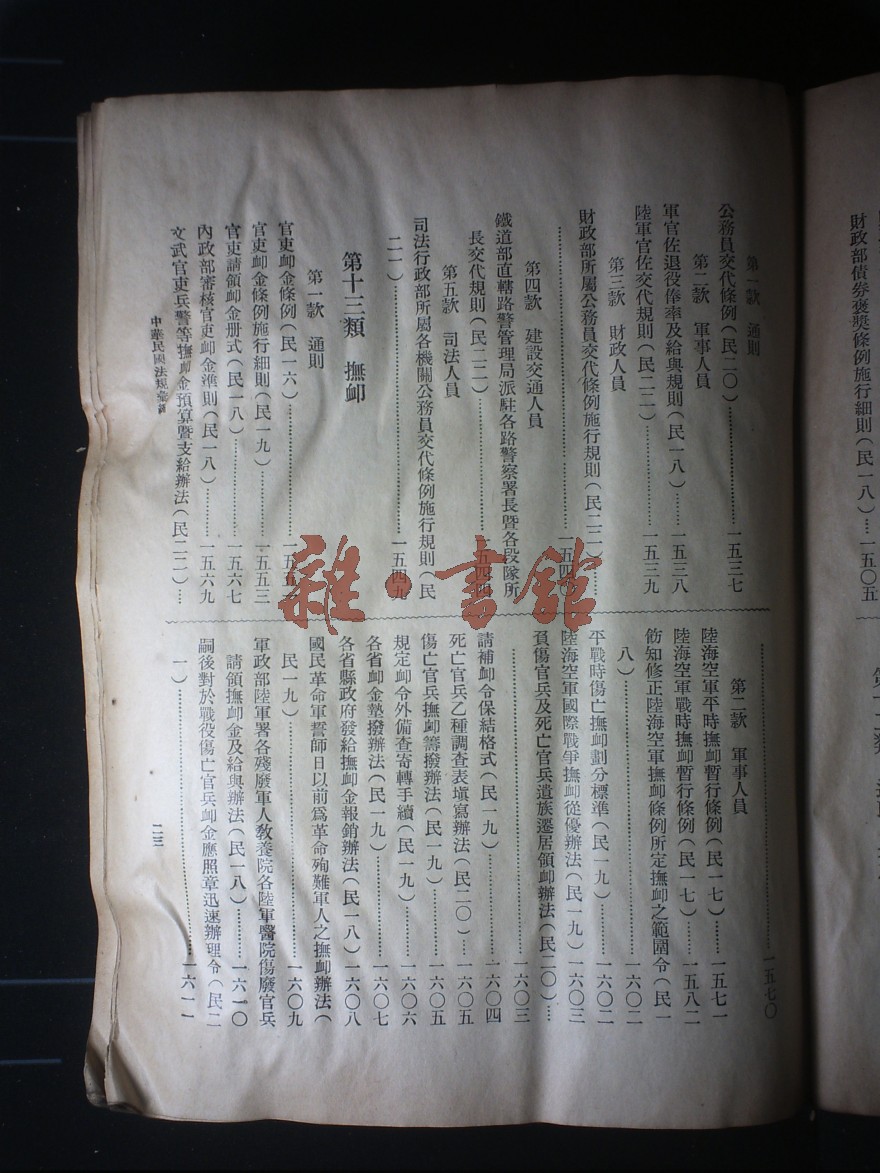 第一款　通則
公務員交代條例(民二〇)…一五三七
第二款　軍事人員
軍官佐退役俸率及給與規則(民一八)…一五三八
陸軍官佐交代規則(民二二)…一五三九
第三款　財政人員
財政部所屬公務員交代條例施行規則(民二二)…
…一五四〇
第四款　建設交通人員
鐵道部直轄路警管理局派駐各路警察署長暨各段隊所
長交代規則(民二二)…一五四四
第五款　司法人員
司法行政部所屬各機關公務員交代條例施行規則(民
二一)…一五四九
第十三類　撫卹
第一款　通則
官吏卹金條例(民一六)…一五五
官吏卹金條例施行細則(民一九)…一五五三
官吏請領卹金册式(民一八)…一五六七
內政部審核官吏卹金準則(民一八)…一五六九
文武官吏兵警等撫卹金預算暨支給辦法(民二二)…
…一五七〇
第二款　軍事人員
陸海空軍平時撫卹暫行條例(民一七)…一五七一
陸海空軍戰時撫卹暫行條例(民一七)…一五八二
飭知修正陸海空軍撫卹條例所定撫卹之範圍令(民一
八)…一六〇二
平戰時傷亡撫卹劃分標準(民一九)…一六〇二
陸海空軍國際戰爭撫卹從優辦法(民一九)…一六〇三
負傷官兵及死亡官兵遺族遷居領卹辦法(民二〇)…
…一六〇三
請補卹令保結格式(民一九)…一六〇四
死亡官兵乙種調查表塡寫辦法(民二〇)…一六〇五
傷亡官兵撫卹籌撥辦法(民一九)…一六〇五
規定卹令外備查寄轉手續(民一九)…一六〇六
各省卹金墊撥辦法(民一九)…一六〇七
各省縣政府發給撫卹金報銷辦法(民一八)…一六〇八
國民革命軍誓師日以前爲革命殉難軍人之撫卹辦法(
民一九)…一六〇九
軍政部陸軍署各殘廢軍人敎養院各陸軍醫院傷廢官兵
請領撫卹金及給與辦法(民一八)…一六一〇
嗣後對於戰役傷亡官兵卹金應照章迅速辦理令(民二
一)…一六一一
中華民國法規彙編
二三
財政部債券褒獎條例施行細則(民一八)…一五〇五
雜·書館